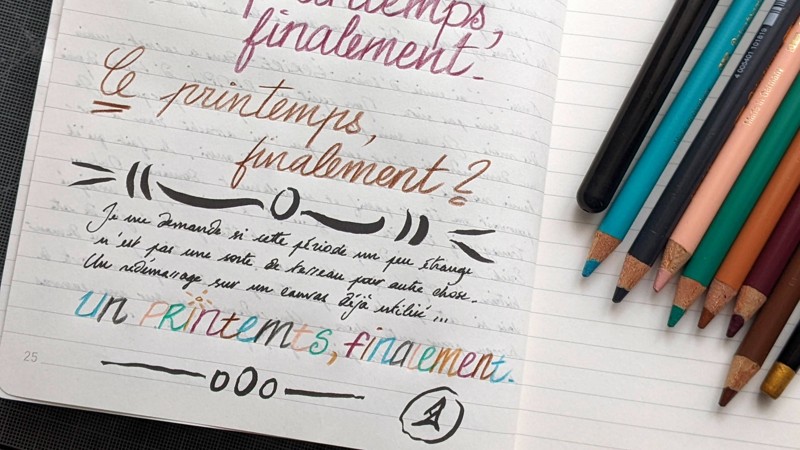 printemps,
finalement.
Le printemps,
finalement ?
Je me demande si cette période un peu étrange
n'est pas une sorte de terreau pour autre chose.
Un redémarrage sur un canvas déjà utilisé...
Un PRintEMTs, finalement.
25
4 005403 101819
Made in Germany